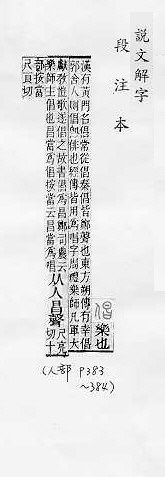 說文解字
段注本
倡 樂也
漢有黃門名倡常從倡秦倡皆鄭聲也東方朔傳有幸倡
郭舍人則倡即俳也經傳皆用爲唱字周禮樂師凡軍大
獻敎愷歌遂倡之故書倡爲昌鄭司農云
樂師主倡也昌當爲倡按當云昌當爲唱
从人昌聲
尺亮
切十
部按當
尺良切
(人部 P383
~384)